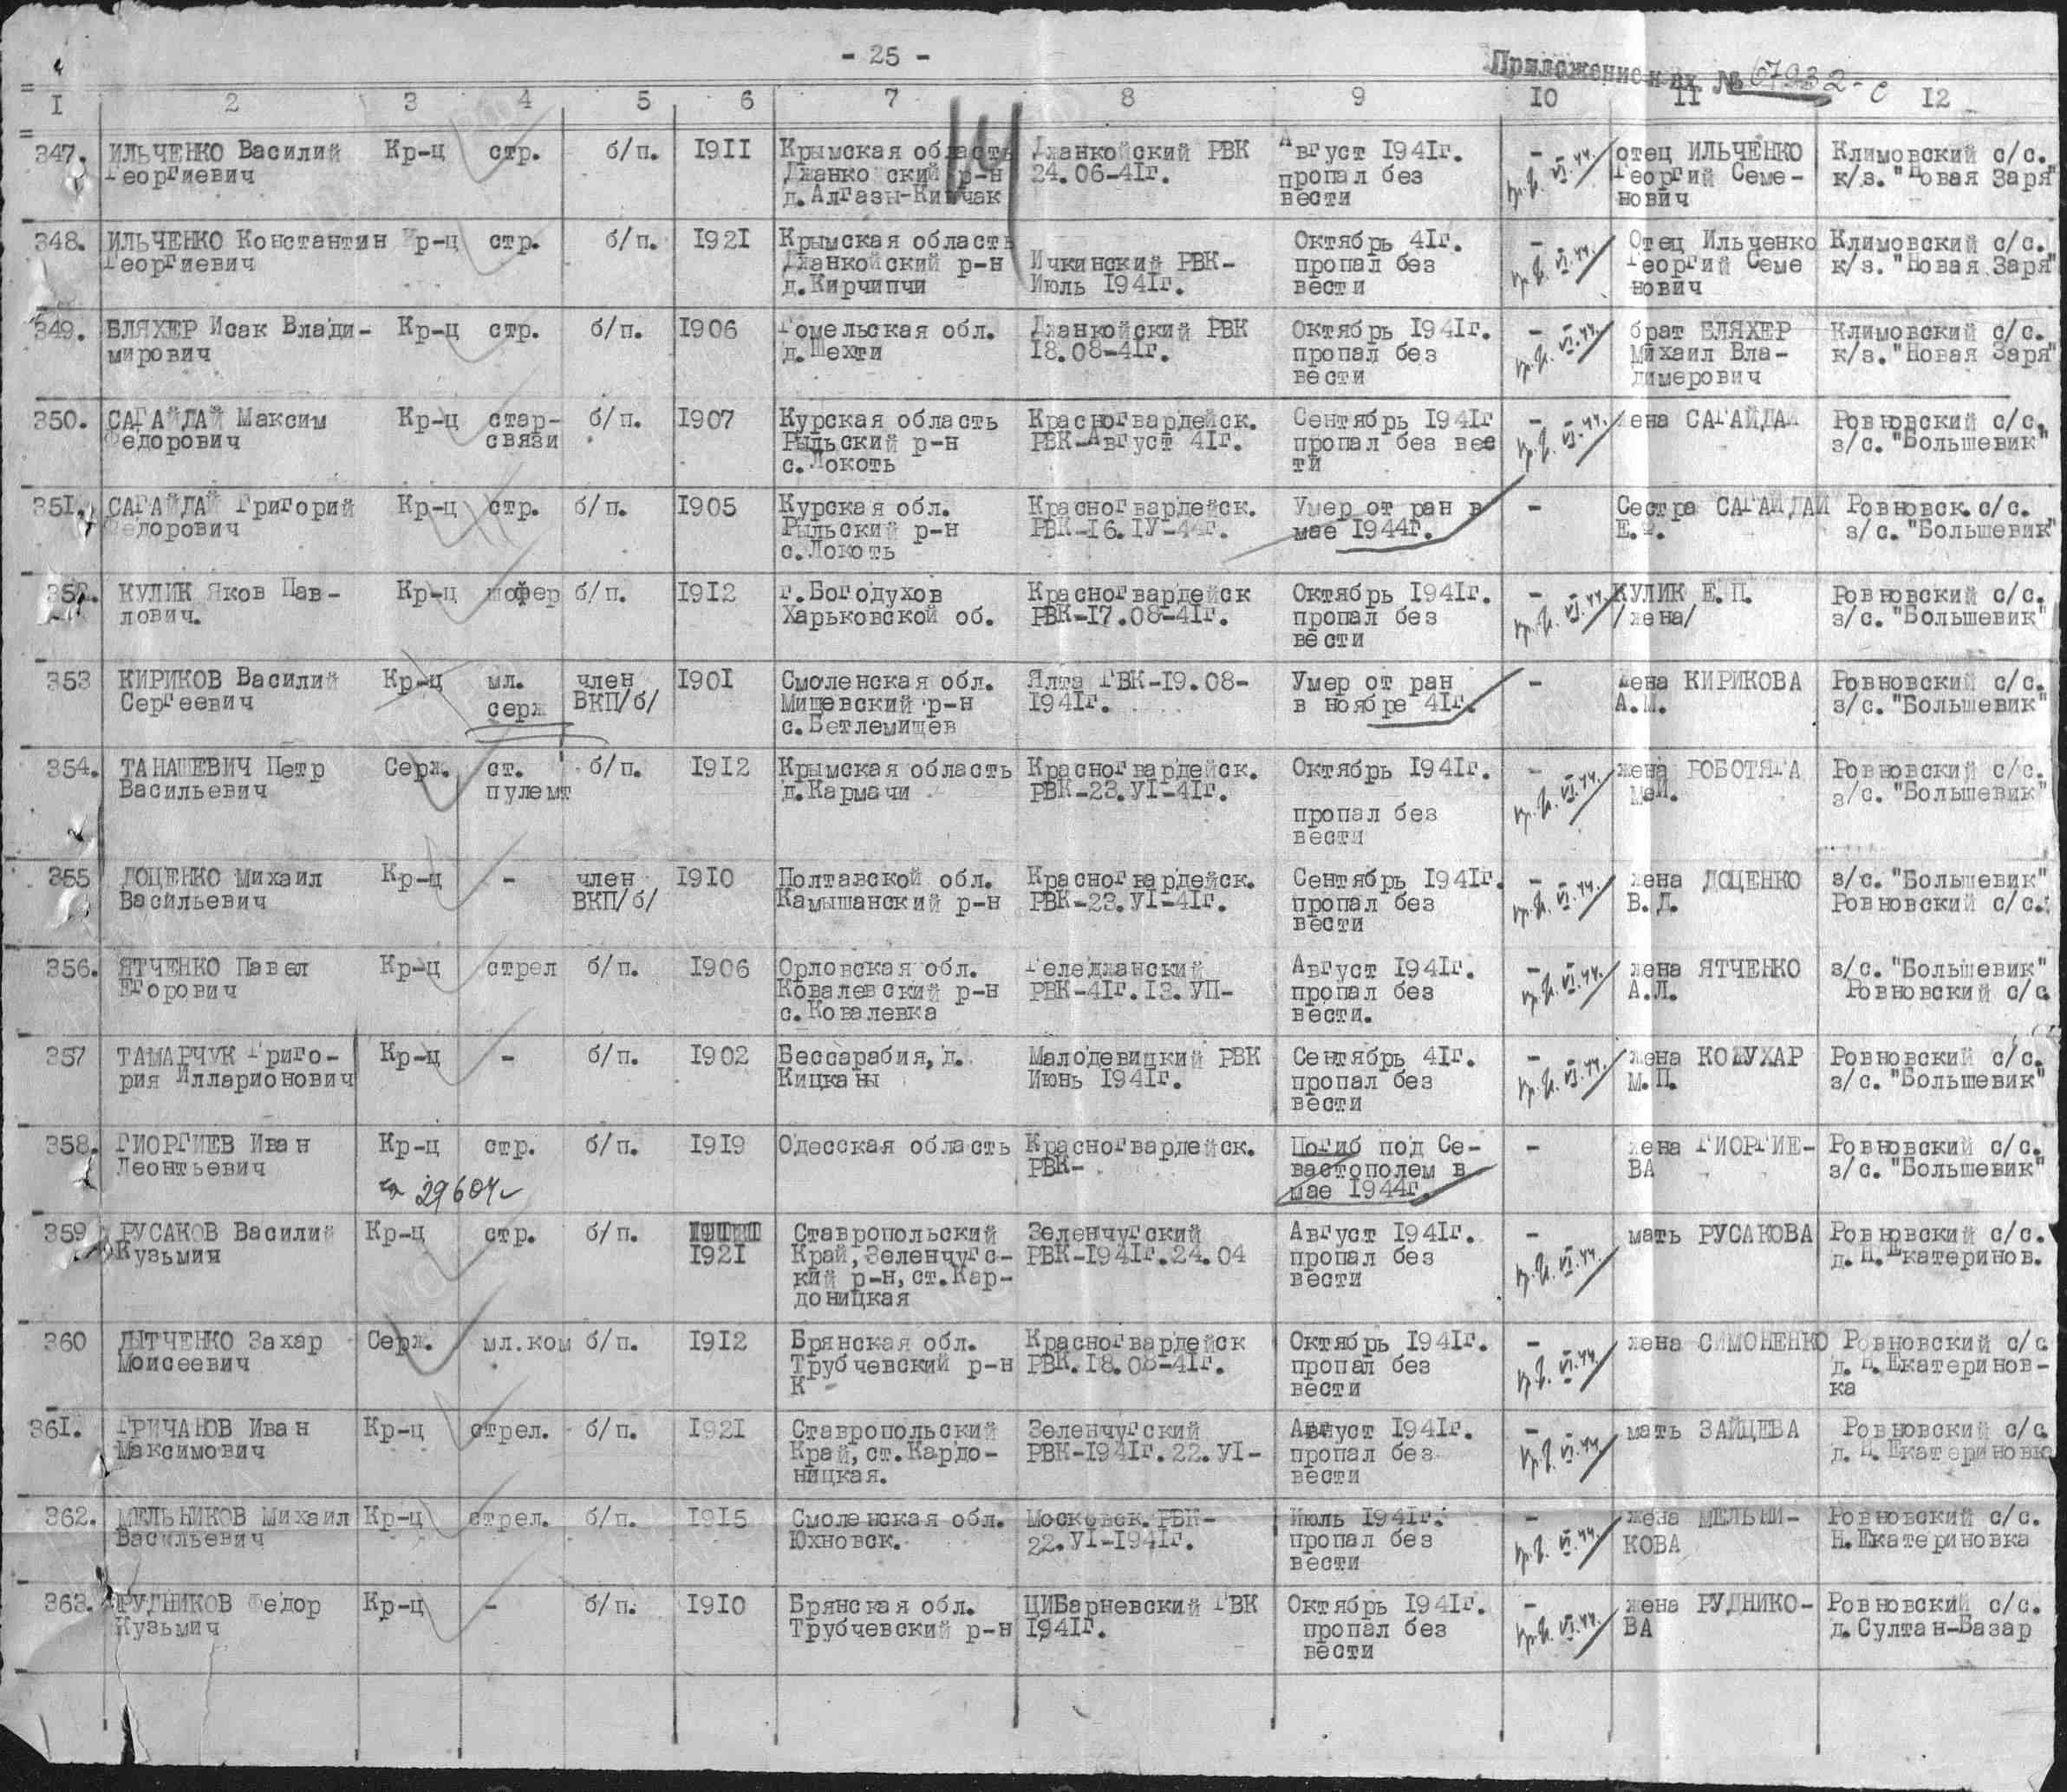 - 25 -
Приложение к вх № 67932-с
I 2 3 4 5 6 7 8 9 10 11 12
347. ИЛЬЧЕНКО Василий Георгиевич Кр-ц стр. б/п. 1911 Крымская область Джанко ский р-н д.Алгазы-Кипчак Джанкойский РВК 24.06-41г. Август 1941г. пропал без вести - пр.б. VI.44. отец ИЛЬЧЕНКО Георгий Семе-нович Климовский с/с. к/з."Новая Заря"
348. ИЛЬЧЕНКО Константин Георгиевич Кр-ц стр. б/п. 1921 Крымская область Джанкойский р-н д.Кирчипчи Ичкинский РВК-Июль 1941г. Октябрь 41г. пропал без вести - пр.б. VI.44. Отец Ильченко Георгий Семе нович Климовский с/с. к/з."Новая Заря"
349. БЛЯХЕР Исак Влади-мирович Кр-ц стр. б/п. 1906 Гомельская обл. д.Шехти Джанкойский РВК 18.08-41г. Октябрь 1941г. пропал без вести - пр.б. VI.44. брат БЛЯХЕР Михаил Вла-димерович Климовский с/с. к/з."Новая Заря"
350. САГАЙДАЙ Максим Федорович Кр-ц стар-связи б/п. 1907 Курская область Рыльский р-н с.Локоть Красногвардейск. РВК-Август 41г. Сентябрь 1941г пропал без вес ти - пр.б. VI.44. жена САГАЙДАЙ Ровновский с/с. з/с."Большевик"
351. САГАЙДАЙ Григорий Федорович Кр-ц стр. б/п. 1905 Курская обл. Рыльский р-н с.Локоть Красногвардейск. РВК-16.IУ-44г. Умер от ран в мае 1944г. - Сестра САГАЙДАЙ Е.Ф. Ровновск.с/с. з/с."Большевик"
352. КУЛИК Яков Пав-лович. Кр-ц шофер б/п. 1912 г.Богодухов Харьковской об. Красногвардейск РВК-17.08-41г. Октябрь 1941г. пропал без вести - пр.б. VI.44. КУЛИК Е.П. /жена/ Ровновский с/с. з/с."Большевик"
353 КИРИКОВ Василий Сергеевич Кр-ц мл. серж член ВКП/б/ 1901 Смоленская обл. Мишевский р-н с.Бетлемищев Ялта ГВК-19.08-1941г. Умер от ран в ноябре 41г. - жена КИРИКОВА А.М. Ровновский с/с. з/с."Большевик"
354. ТАНАШЕВИЧ Петр Васильевич Серж. ст. пулемт б/п. 1912 Крымская область д.Кармачи Красногвардейск. РВК-23.УI-41г. Октябрь 1941г. пропал без вести - пр.б. VI.44. жена РОБОТЯГА М.И. Ровновский с/с. з/с."Большевик"
355 ДОЦЕНКО Михаил Васильевич Кр-ц - член ВКП/б/ 1910 Полтавской обл. Камышанский р-н Красногвардейск. РВК-23.УI-41г. Сентябрь 1941г. пропал без вести - пр.б. VI.44. жена ДОЦЕНКО В.Д. з/с."Большевик" Ровновский с/с.
356. ЯТЧЕНКО Павел Егорович Кр-ц стрел б/п. 1906 Орловская обл. Ковалевский р-н с.Ковалевка Геледжанский РВК-41г.13.УП- Август 1941г. пропал без вести. - пр.б. VI.44. жена ЯТЧЕНКО А.Л. з/с."Большевик" Ровновский с/с.
357 ТАМАРЧУК Григо-рия Илларионович Кр-ц - б/п. 1902 Бессарабия,д. Кицканы Малодевицкий РВК Июнь 1941г. Сентябрь 41г. пропал без вести - пр.б. VI.44. жена КОЖУХАР М.П. Ровновский с/с. з/с."Большевик"
358. ГИОРГИЕВ Иван Леонтьевич Кр-ц 29604 стр. б/п. 1919 Одесская область Красногвардейск. РВК- Погиб под Се-вастополем в мае 1944г. - жена ГИОРГИЕ-ВА Ровновский с/с. з/с."Большевик"
359 РУСАКОВ Василий Кузьмич Кр-ц стр. б/п. 1921 Ставропольский Край,Зеленчугс-кий р-н,ст.Кар-доницкая Зеленчугский РВК-1941г.24.04 Август 1941г. пропал без вести - пр.б. VI.44. мать РУСАКОВА Ровновский с/с. д.Н.Екатеринов.
360 ДЫТЧЕНКО Захар Моисеевич Серж. мл.ком б/п. 1912 Брянская обл. Трубчевский р-н К Красногвардейск РВК.18.08-41г. Октябрь 1941г. пропал без вести - пр.б. VI.44. жена СИМОНЕНКО Ровновский с/с д.Н.Екатеринов-ка
361. ГРИЧАНОВ Иван Максимович Кр-ц стрел. б/п. 1921 Ставропольский Край,ст.Кардо-ницкая. Зеленчугский РВК-1941г.22.УI- Август 1941г. пропал без вести - пр.б. VI.44. мать ЗАЙЦЕВА Ровновский с/с. д.Н.Екатериновк
362. МЕЛЬНИКОВ Михаил Васильевич Кр-ц стрел. б/п. 1915 Смоленская обл. Юхновск. Московск.РВК-22.УI-1941г. Июль 1941г. пропал без вести - пр.б. VI.44. жена МЕЛЬНИ-КОВА Ровновский с/с. Н.Екатериновка
363. РУДНИКОВ Федор Кузьмич Кр-ц - б/п. 1910 Брянская обл. Трубчевский р-н ЦИБарневский ГВК 1941г. Октябрь 1941г. пропал без вести - пр.б. VI.44. жена РУДНИКО-ВА Ровновский с/с. д.Султан-Базар